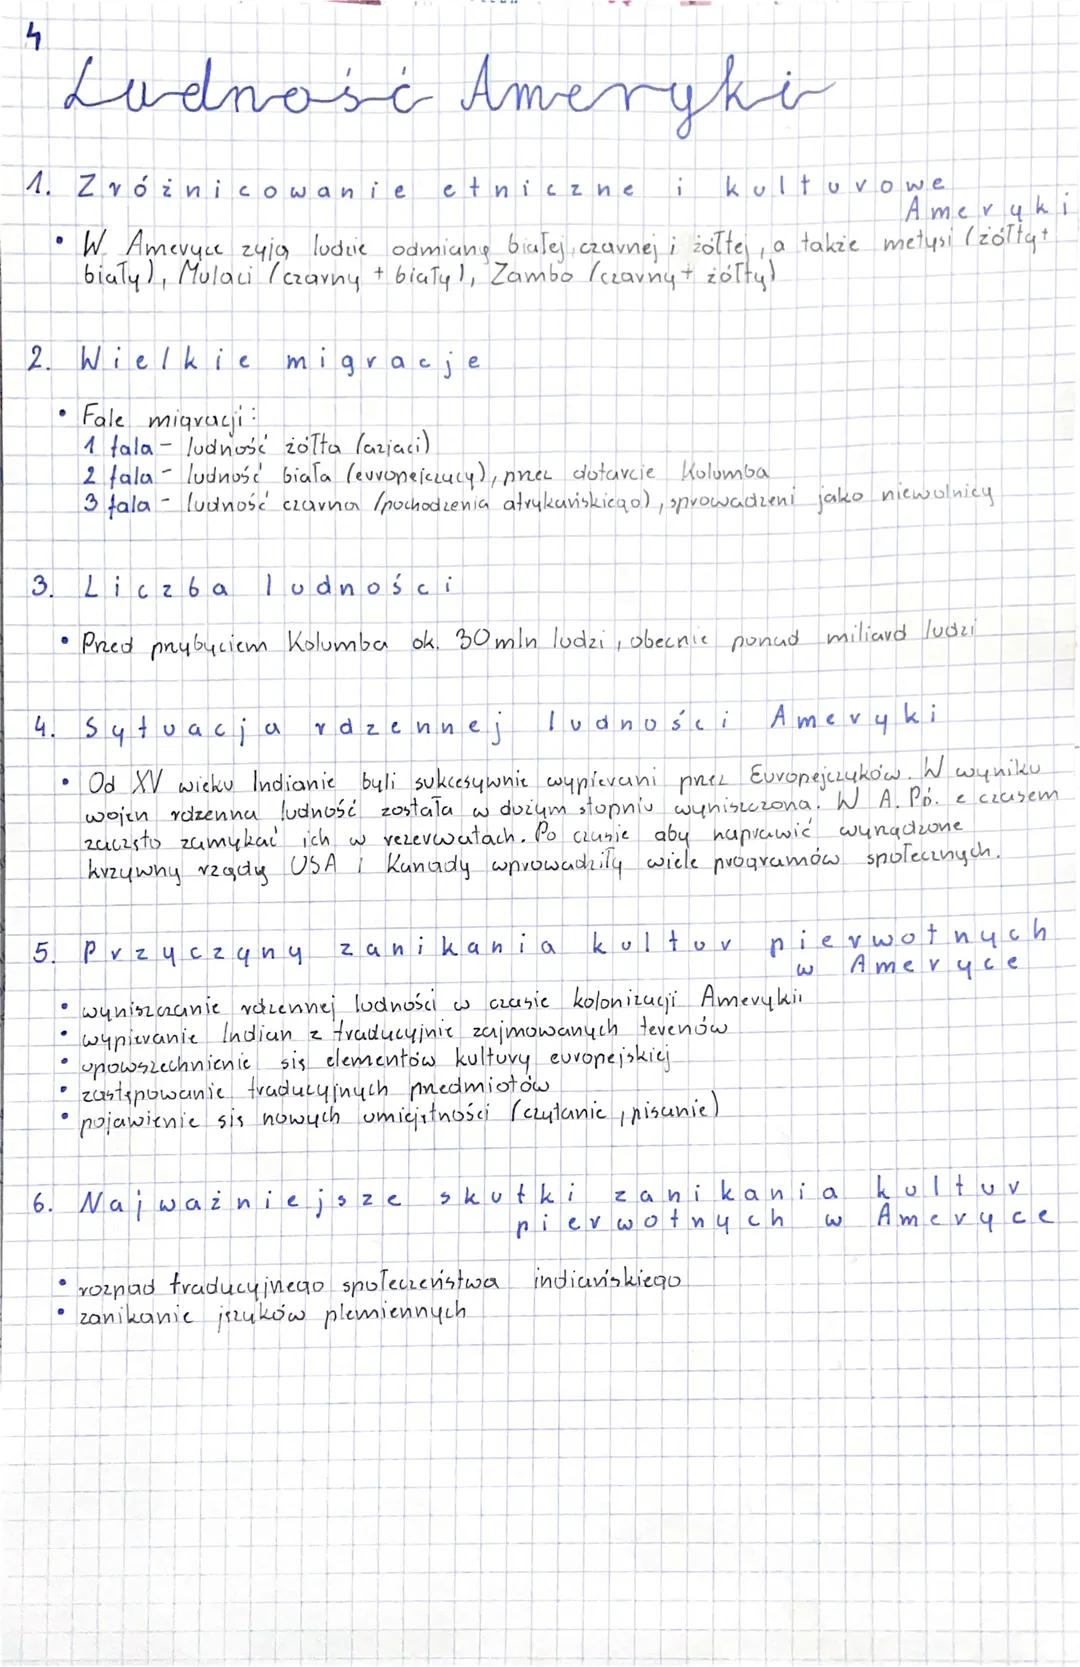 4
Ludność Ameryki
1. Zróżnicowanie etniczne i kulturowe
Ameryki
• W Ameryce żyją ludzie odmianą białej, czarnej i żółtej, a także metysi (żółty +
biały), Mulaci (czarny + biały), Zambo (czarny + żółty)
2. Wielkie migracje
• Fale migracji:
1 fala - ludność żółta (azjaci)
2 fala - ludność biała (europejczycy), przez dotarcie Kolumba
3 fala - ludność czarna (pochodzenia afrykańskiego), sprowadzeni jako niewolnicy
3. Liczba ludności
• Przed przybyciem Kolumba ok. 30 mln ludzi, obecnie ponad miliard ludzi
4. Sytuacja rdzennej ludności Ameryki
• Od XV wieku Indianie byli sukcesywnie wypierani przez Europejczyków. W wyniku
wojen rdzenna ludność została w dużym stopniu wyniszczona. W A. Pó. z czasem
zaczęto zamykać ich w rezerwatach. Po czasie aby naprawić wyrządzone
krzywny rządy USA i Kanady wprowadziły wiele programów społecznych.
5. Przyczyny zanikania kultur pierwotnych
w Ameryce
• wyniszczanie rdzennej ludności w czasie kolonizacji Amerykii
• wypieranie Indian z tradycyjnie zajmowanych terenów
• upowszechnienie się elementów kultury europejskiej
• zastępowanie tradycyjnych przedmiotów
• pojawienie się nowych umiejętności (czytanie, pisanie)
6. Najważniejsze skutki zanikania kultur
pierwotnych w Ameryce
• rozpad tradycyjnego społeczeństwa indiańskiego
• zanikanie języków plemiennych